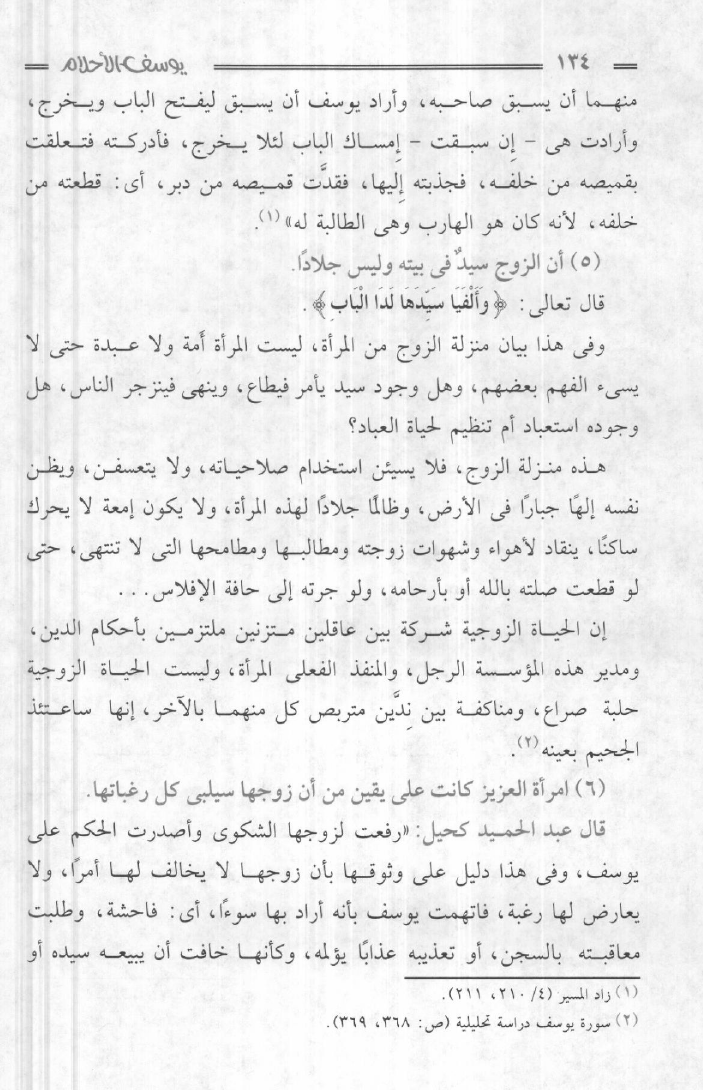 ١٣٤ يوسف الأحلام
منهما أن يسبق صاحبه، وأراد يوسف أن يسبق ليفتح الباب ويخرج،
وأرادت هى - إن سبقت - إمساك الباب لئلا يخرج، فأدركته فتعلقت
بقميصه من خلفه، فجذبته إليها، فقدَّت قميصه من دبر، أى: قطعته من
خلفه، لأنه كان هو الهارب وهى الطالبة له» (١).
(٥) أن الزوج سيدٌ فى بيته وليس جلادًا.
قال تعالى: ﴿وَأَلْفَيَا سَيِّدَهَا لَدَا الْبَابِ﴾ .
وفى هذا بيان منزلة الزوج من المرأة، ليست المرأة أَمة ولا عبدة حتى لا
يسىء الفهم بعضهم، وهل وجود سيد يأمر فيطاع، وينهى فينزجر الناس، هل
وجوده استعباد أم تنظيم لحياة العباد؟
هذه منزلة الزوج، فلا يسيئن استخدام صلاحياته، ولا يتعسفن، ويظن
نفسه إلهًا جبارًا فى الأرض، وظالمًا جلادًا لهذه المرأة، ولا يكون إمعة لا يحرك
ساكنًا، ينقاد لأهواء وشهوات زوجته ومطالبها ومطامحها التى لا تنتهى، حتى
لو قطعت صلته بالله أو بأرحامه، ولو جرته إلى حافة الإفلاس...
إن الحياة الزوجية شركة بين عاقلين متزنين ملتزمين بأحكام الدين،
ومدير هذه المؤسسة الرجل، والمنفذ الفعلى المرأة، وليست الحياة الزوجية
حلبة صراع، ومناكفة بين نِدَّين متربص كل منهما بالآخر، إنها ساعتئذ
الجحيم بعينه (٢).
(٦) امرأة العزيز كانت على يقين من أن زوجها سيلبى كل رغباتها.
قال عبد الحميد كحيل: «رفعت لزوجها الشكوى وأصدرت الحكم على
يوسف، وفى هذا دليل على وثوقها بأن زوجها لا يخالف لها أمرًا، ولا
يعارض لها رغبة، فاتهمت يوسف بأنه أراد بها سوءًا، أى: فاحشة، وطلبت
معاقبته بالسجن، أو تعذيبه عذابًا يؤلمه، وكأنها خافت أن يبيعه سيده أو
(١) زاد المسير (٤/ ٢١٠، ٢١١).
(٢) سورة يوسف دراسة تحليلية (ص: ٣٦٨، ٣٦٩).